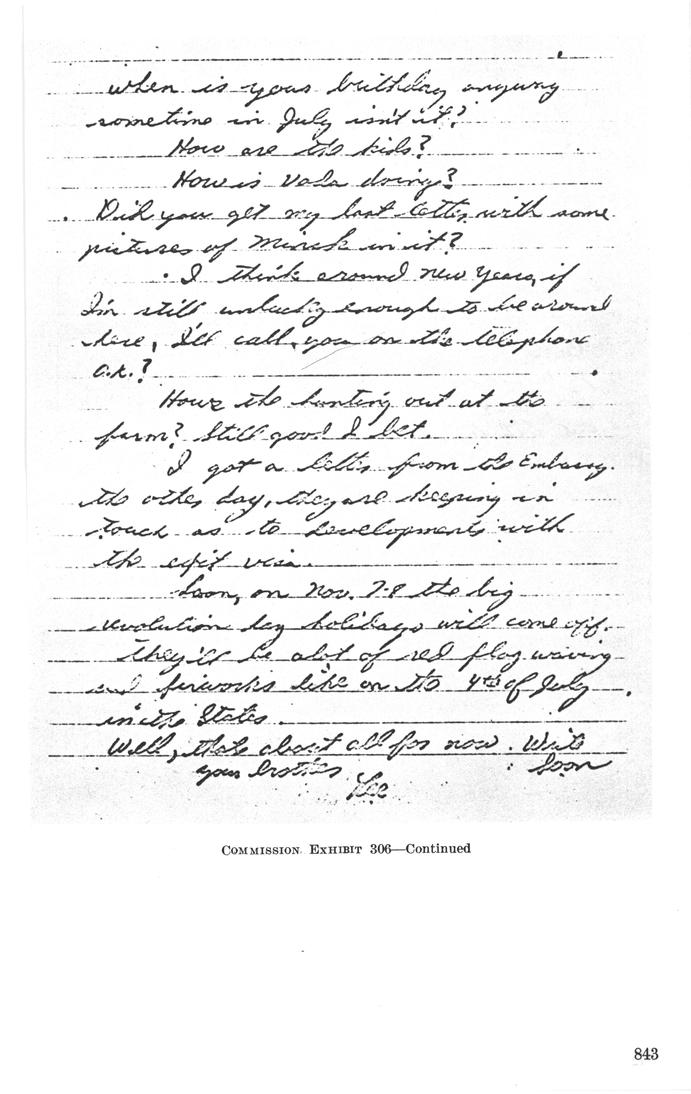 when is your birthday anyway
sometime in July isn't it?
How are the kids?
How is Vada doing?
Did you get my last letter, with some
pictures of Minsk in it?
I think around new years, if
I'm still unlucky enough to be around
here, I'll call, you on the telephone
O.K.?
Hows the hunting out at the
farm? Still good I bet.
I got a letter from the Embassy.
the other day, they are keeping in
touch as to developments with
the exit visa.
Soon, on Nov. 7-8 the big
revolution day holidays will come off.
they'll be alot of red flag waving
and fireworks like on the 4th of July
in the States.
Well, thats about all for now. Write
your brother soon
Lee
COMMISSION EXHIBIT 306—Continued
843